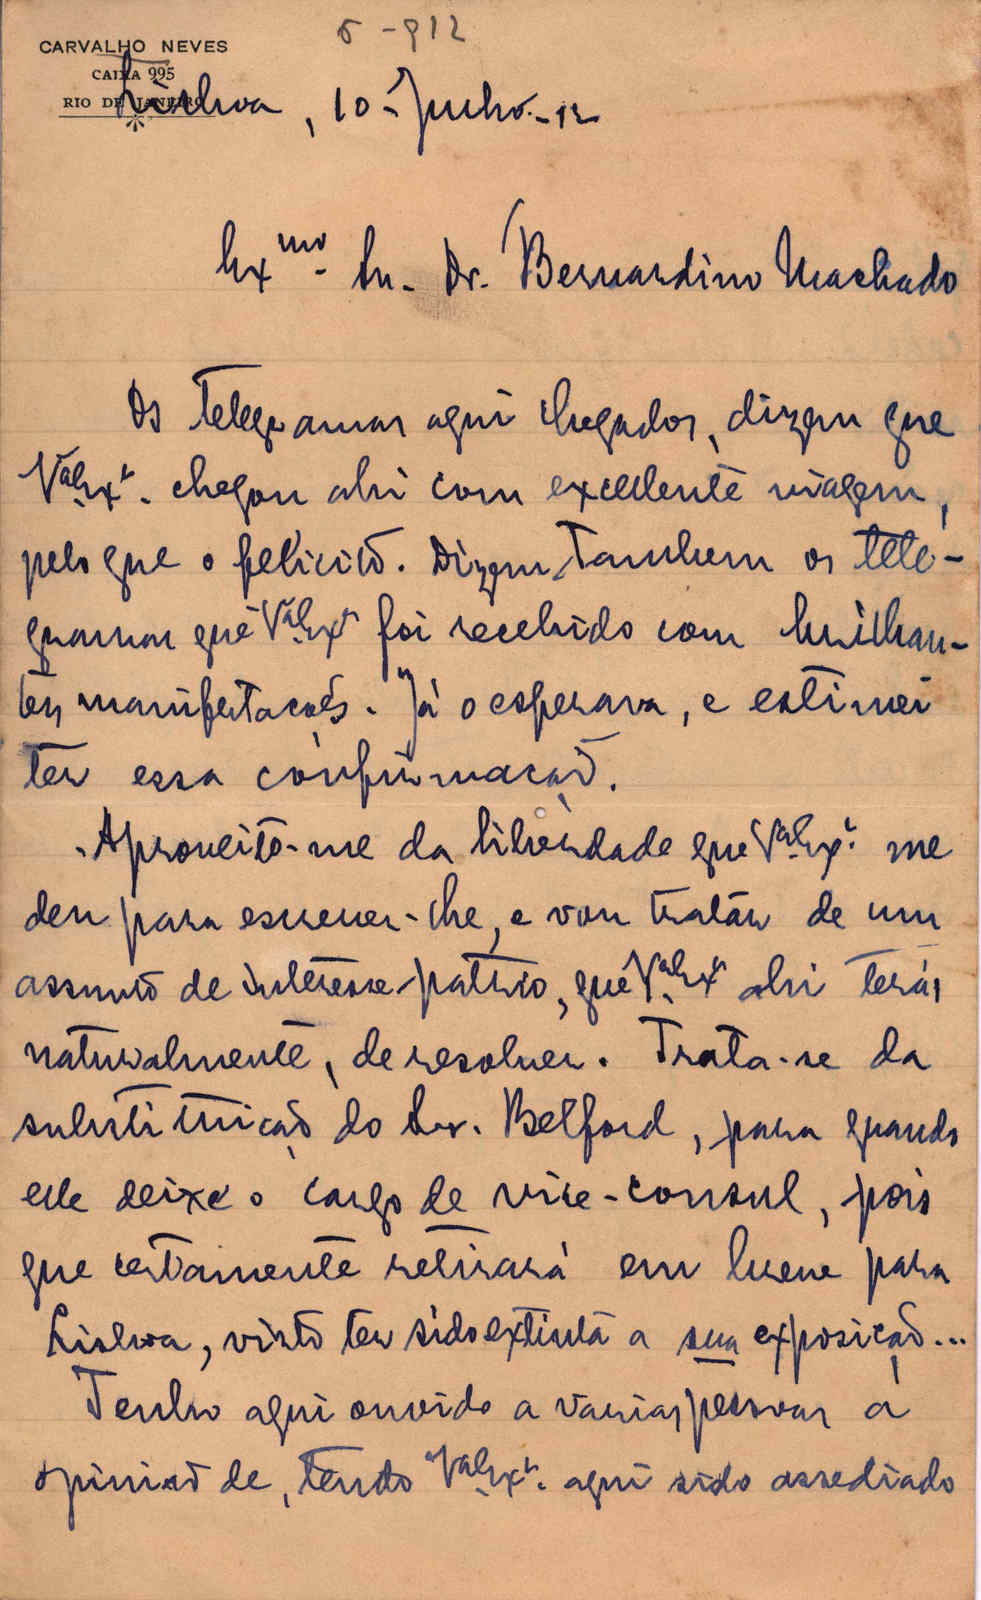 5-912
CARVALHO NEVES
CAIXA 995
RIO DE JANEIRO
Lisboa, 10-Julho-12
Exmo. Snr. Dr. Bernardino Machado
Os telegramas aqui chegados, dizem que
V.a Ex.a chegou ahi com excellente viagem,
pelo que o felicito. Dizem tambem os tele-
gramas que V.a Ex.a foi recebido com brilhan-
tes manifestações. Já o esperava, e estimei
ter essa confirmação.
Aproveito-me da liberdade que V.a Ex.a me
deu para escrever-lhe, e vou tratar de um
assunto de interesse patrio, que V.a Ex.a ahi terá,
naturalmente, de resolver. Trata-se da
substituição do Snr. Belford, para quando
elle deixe o cargo de vice-consul, pois
que certamente retirará em breve para
Lisboa, visto ter sido extinta a sua exposição...
Tenho aqui ouvido a varias pessoas a
opinião de, tendo V.a Ex.a aqui sido assediado